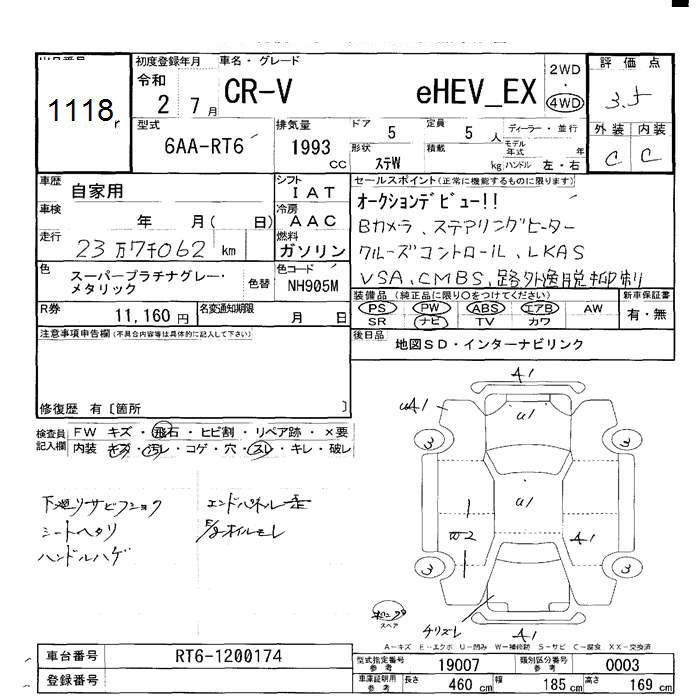 1118r
初度登録年月
令和
2 7月
車名・グレード
CR-V eHEV_EX
2WD・
4WD
評価点
3.5
外装 内装
C C
型式
6AA-RT6
排気量
1993 CC
ドア 5
定員 5 人
ディーラー・並行
形状 ステW
積載 kg
モデル年式 年
ハンドル 左・右
車歴
自家用
シフト
IAT
セールスポイント(正常に機能するものに限ります)
オークションデビュー!!
Bカメラ、ステアリングヒーター
クルーズコントロール、LKAS
VSA、CMBS、路外逸脱抑制
車検
年 月( 日)
冷房
AAC
走行
23万7千062 km
燃料
ガソリン
色
スーパープラチナグレー・
メタリック
色替
色コード
NH905M
装備品 (純正品に限り○をつけてください)
PS・PW・ABS・エアB・AW
SR・ナビ・TV・カワ
新車保証書
有・無
R券
11,160 円
名変通知期限
月 日
後日品
地図SD・インターナビリンク
注意事項申告欄(不具合内容等は具体的に記入して下さい)
修復歴 有〔箇所 〕
検査員
記入欄
FW キズ・飛石・ヒビ割・リペア跡・×要
内装 キズ・汚レ・コゲ・穴・スレ・キレ・破レ
下廻りサビフショク
シートヘタリ
ハンドルハゲ
エンドパネル歪
E/gオイルモレ
A1
uA1
u1
3
3
u1
W2
A1
3
3
スペア
チリズレ
A1
A-キズ E-エクボ U-凹み W-補修跡 S-サビ C-腐食 XX-交換済
車台番号
RT6-1200174
登録番号
型式指定番号
参考
19007
類別区分番号
参考
0003
車庫証明用
参考
長さ 460 cm
幅 185 cm
高さ 169 cm